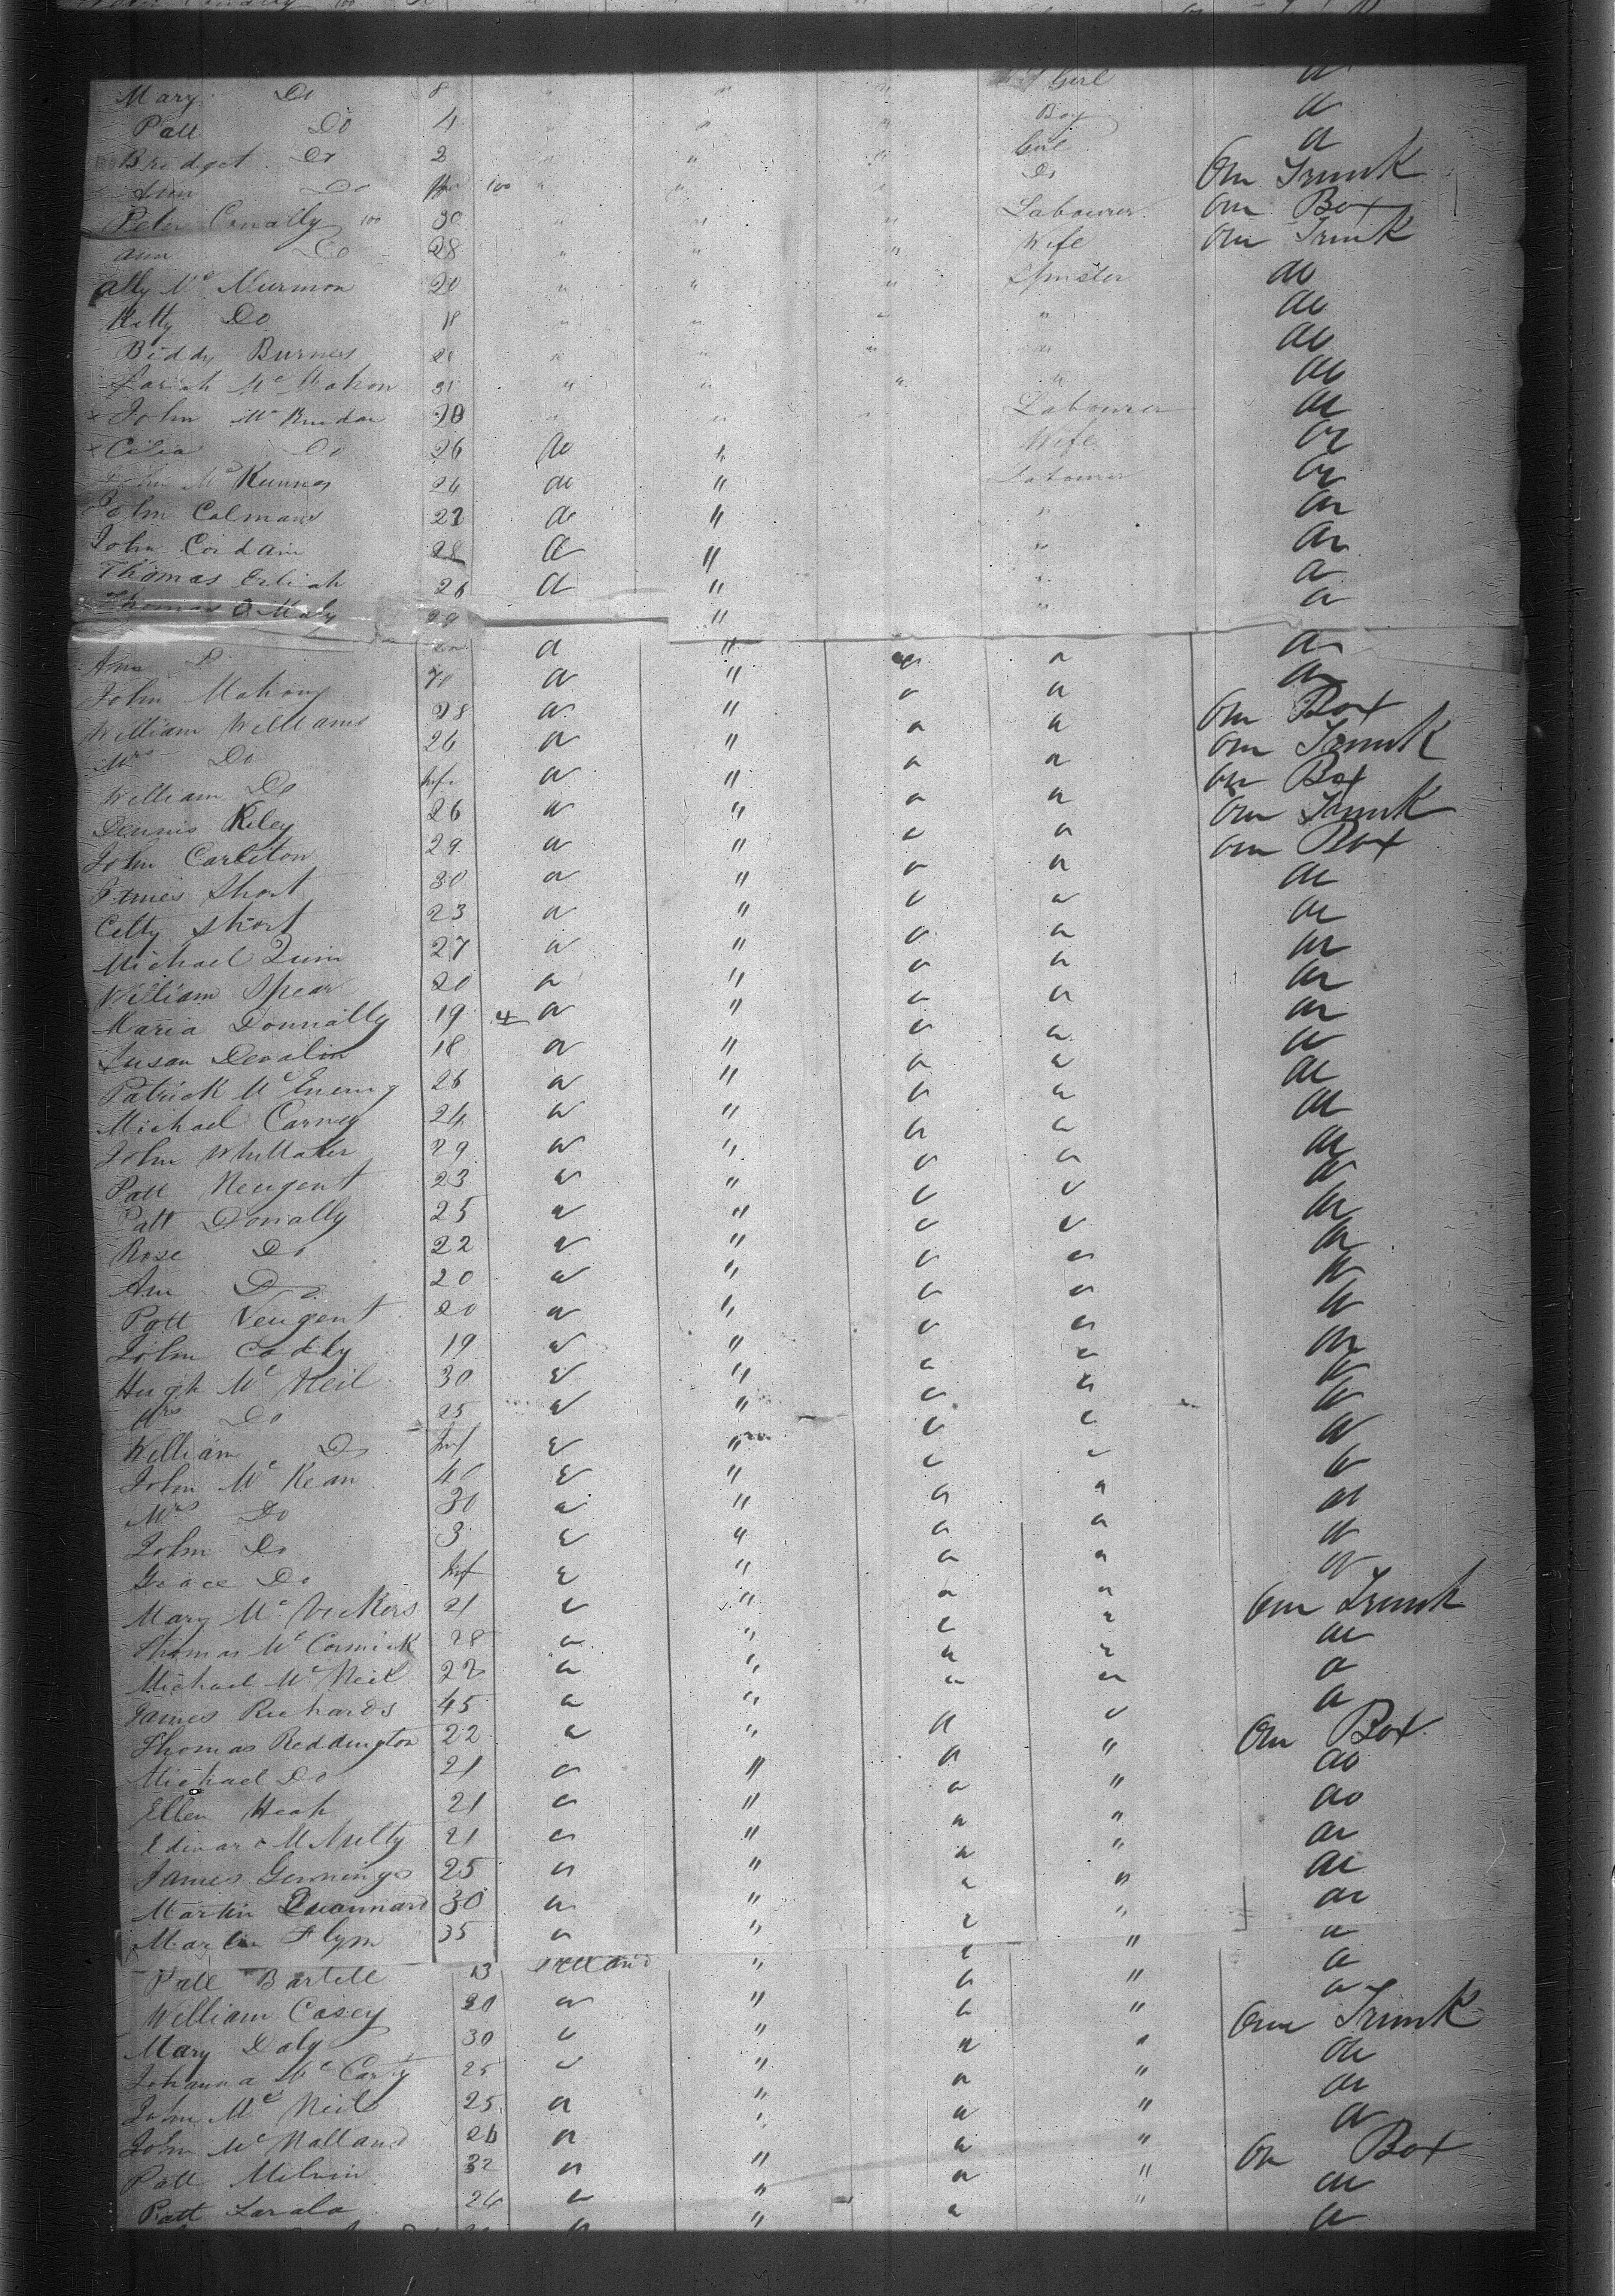 Mary Do 8 " " " Girl do
Patt Do 4 " " " Boy do
Bridget Do 2 " " " Girl do
Ann Do Inf 100 " " " Do One Trunk
Peter Conally 100 30 " " " Labourer One Box
Ann Do 28 " " " Wife One Trunk
Ally Mc Murmon 20 " " " Spinster do
Kitty Do 18 " " " " do
Biddy Burnes 20 " " " " do
Sarah Mc Mahon " " " " do
x John Mc 28 " " " Labourer do
x Cilia Do 26 do " Wife do
John Mc Kunnes 24 do " Labourer do
John Colmans 22 do " " do
John Cordain 28 do " " do
Thomas Erliah 26 do " " do
Thomas O Maly 29 " " do
Ann Do do " do do do
John Mahony do " do do do
William Williams 28 do " do do One Box
Mrs Do 26 do " do do One Trunk
William Do Inf. do " do do One Box
Dennis Riley 26 do " do do One Trunk
John Carleton 29 do " do do One Box
James Short 30 do " do do do
Citty Short 23 do " do do do
Michael Quin 27 do " do do do
William Spear 20 do " do do do
Maria Donnally 19 4 do " do do do
Susan Devalin 18 do " do do do
Patrick Mc Eneny 26 do " do do do
Michael Carney 24 do " do do do
John Whittaker 29 do " do do do
Patt Neugent 23 do " do do do
Patt Donally 25 do " do do do
Rose Do 22 do " do do do
Ann Do 20 do " do do do
Patt Neugent 20 do " do do do
John Caddy 19 do " do do do
Hugh Mc Neil 30 do " do do do
Mrs Do 25 do " do do do
William Do Inf do " do do do
John Mc Kean 40 do " do do do
Mrs Do 30 do " do do do
John Do 3 do " do do do
Grace Do Inf do " do do do
Mary Mc Vickers 21 do " do do One Trunk
Thomas Mc Cormick 28 do " do do do
Michael Mc Neil 22 do " do do do
James Richards 45 do " do do do
Thomas Reddington 22 do " do " One Box
Michael Do 21 do " do " do
Ellen Heap 21 do " do " do
Edward 21 do " do " do
James Gennings 25 do " do " do
Martin 30 do " do " do
Martin Flynn 35 do " do " do
Patt Bartell 23 Ireland " do " do
William Casey 20 do " do " do
Mary Daly 30 do " do " One Trunk
Johanna Mc Carty 25 do " do " do
John Mc Neil 25 do " do " do
John Mc Nalland 26 do " do " do
Patt Melvin 32 do " do " One Box
Patt Larala 24 do " do " do